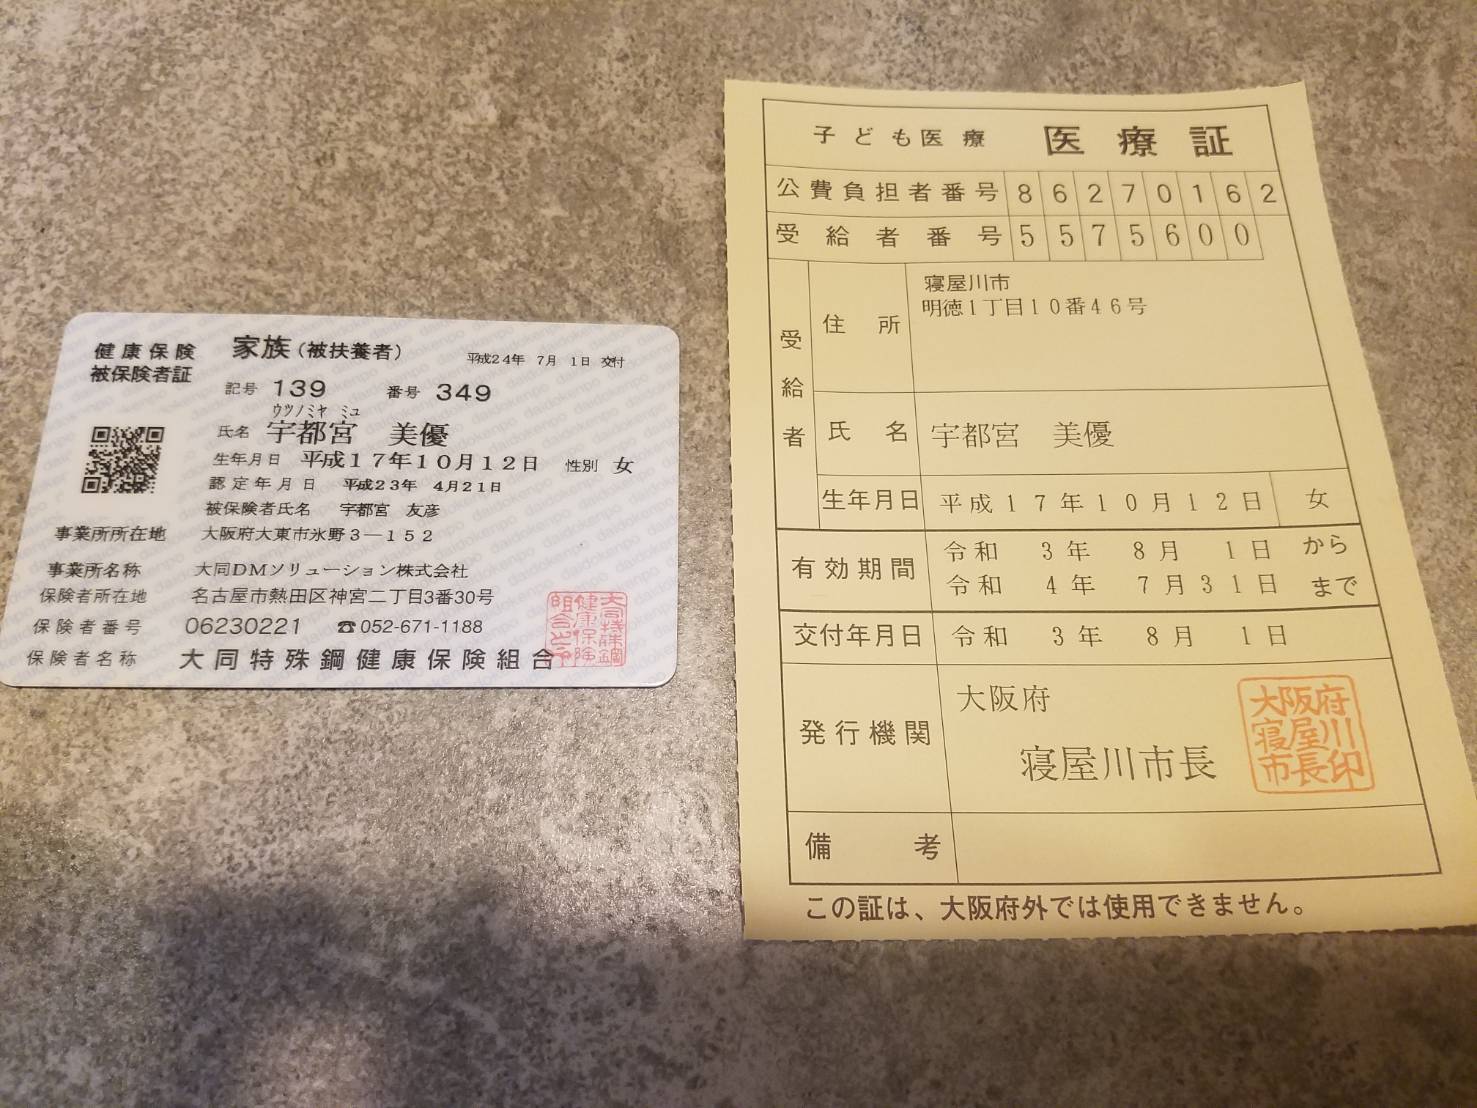 健康保険
被保険者証
家族(被扶養者)
平成24年 7月 1日 交付
記号 139 番号 349
ウツノミヤ ミユ
氏名 宇都宮 美優
生年月日 平成17年10月12日 性別 女
認定年月日 平成23年 4月21日
被保険者氏名 宇都宮 友彦
事業所所在地 大阪府大東市氷野3―152
事業所名称 大同DMソリューション株式会社
保険者所在地 名古屋市熱田区神宮二丁目3番30号
保険者番号 06230221 ☎052-671-1188
保険者名称 大同特殊鋼健康保険組合
子ども医療 医療証
公費負担者番号 86270162
受給者番号 5575600
受給者
住所 寝屋川市
明徳1丁目10番46号
氏名 宇都宮 美優
生年月日 平成17年10月12日 女
有効期間 令和 3年 8月 1日 から
令和 4年 7月31日 まで
交付年月日 令和 3年 8月 1日
発行機関 大阪府
寝屋川市長
大阪府
寝屋川
市長印
備考
この証は、大阪府外では使用できません。